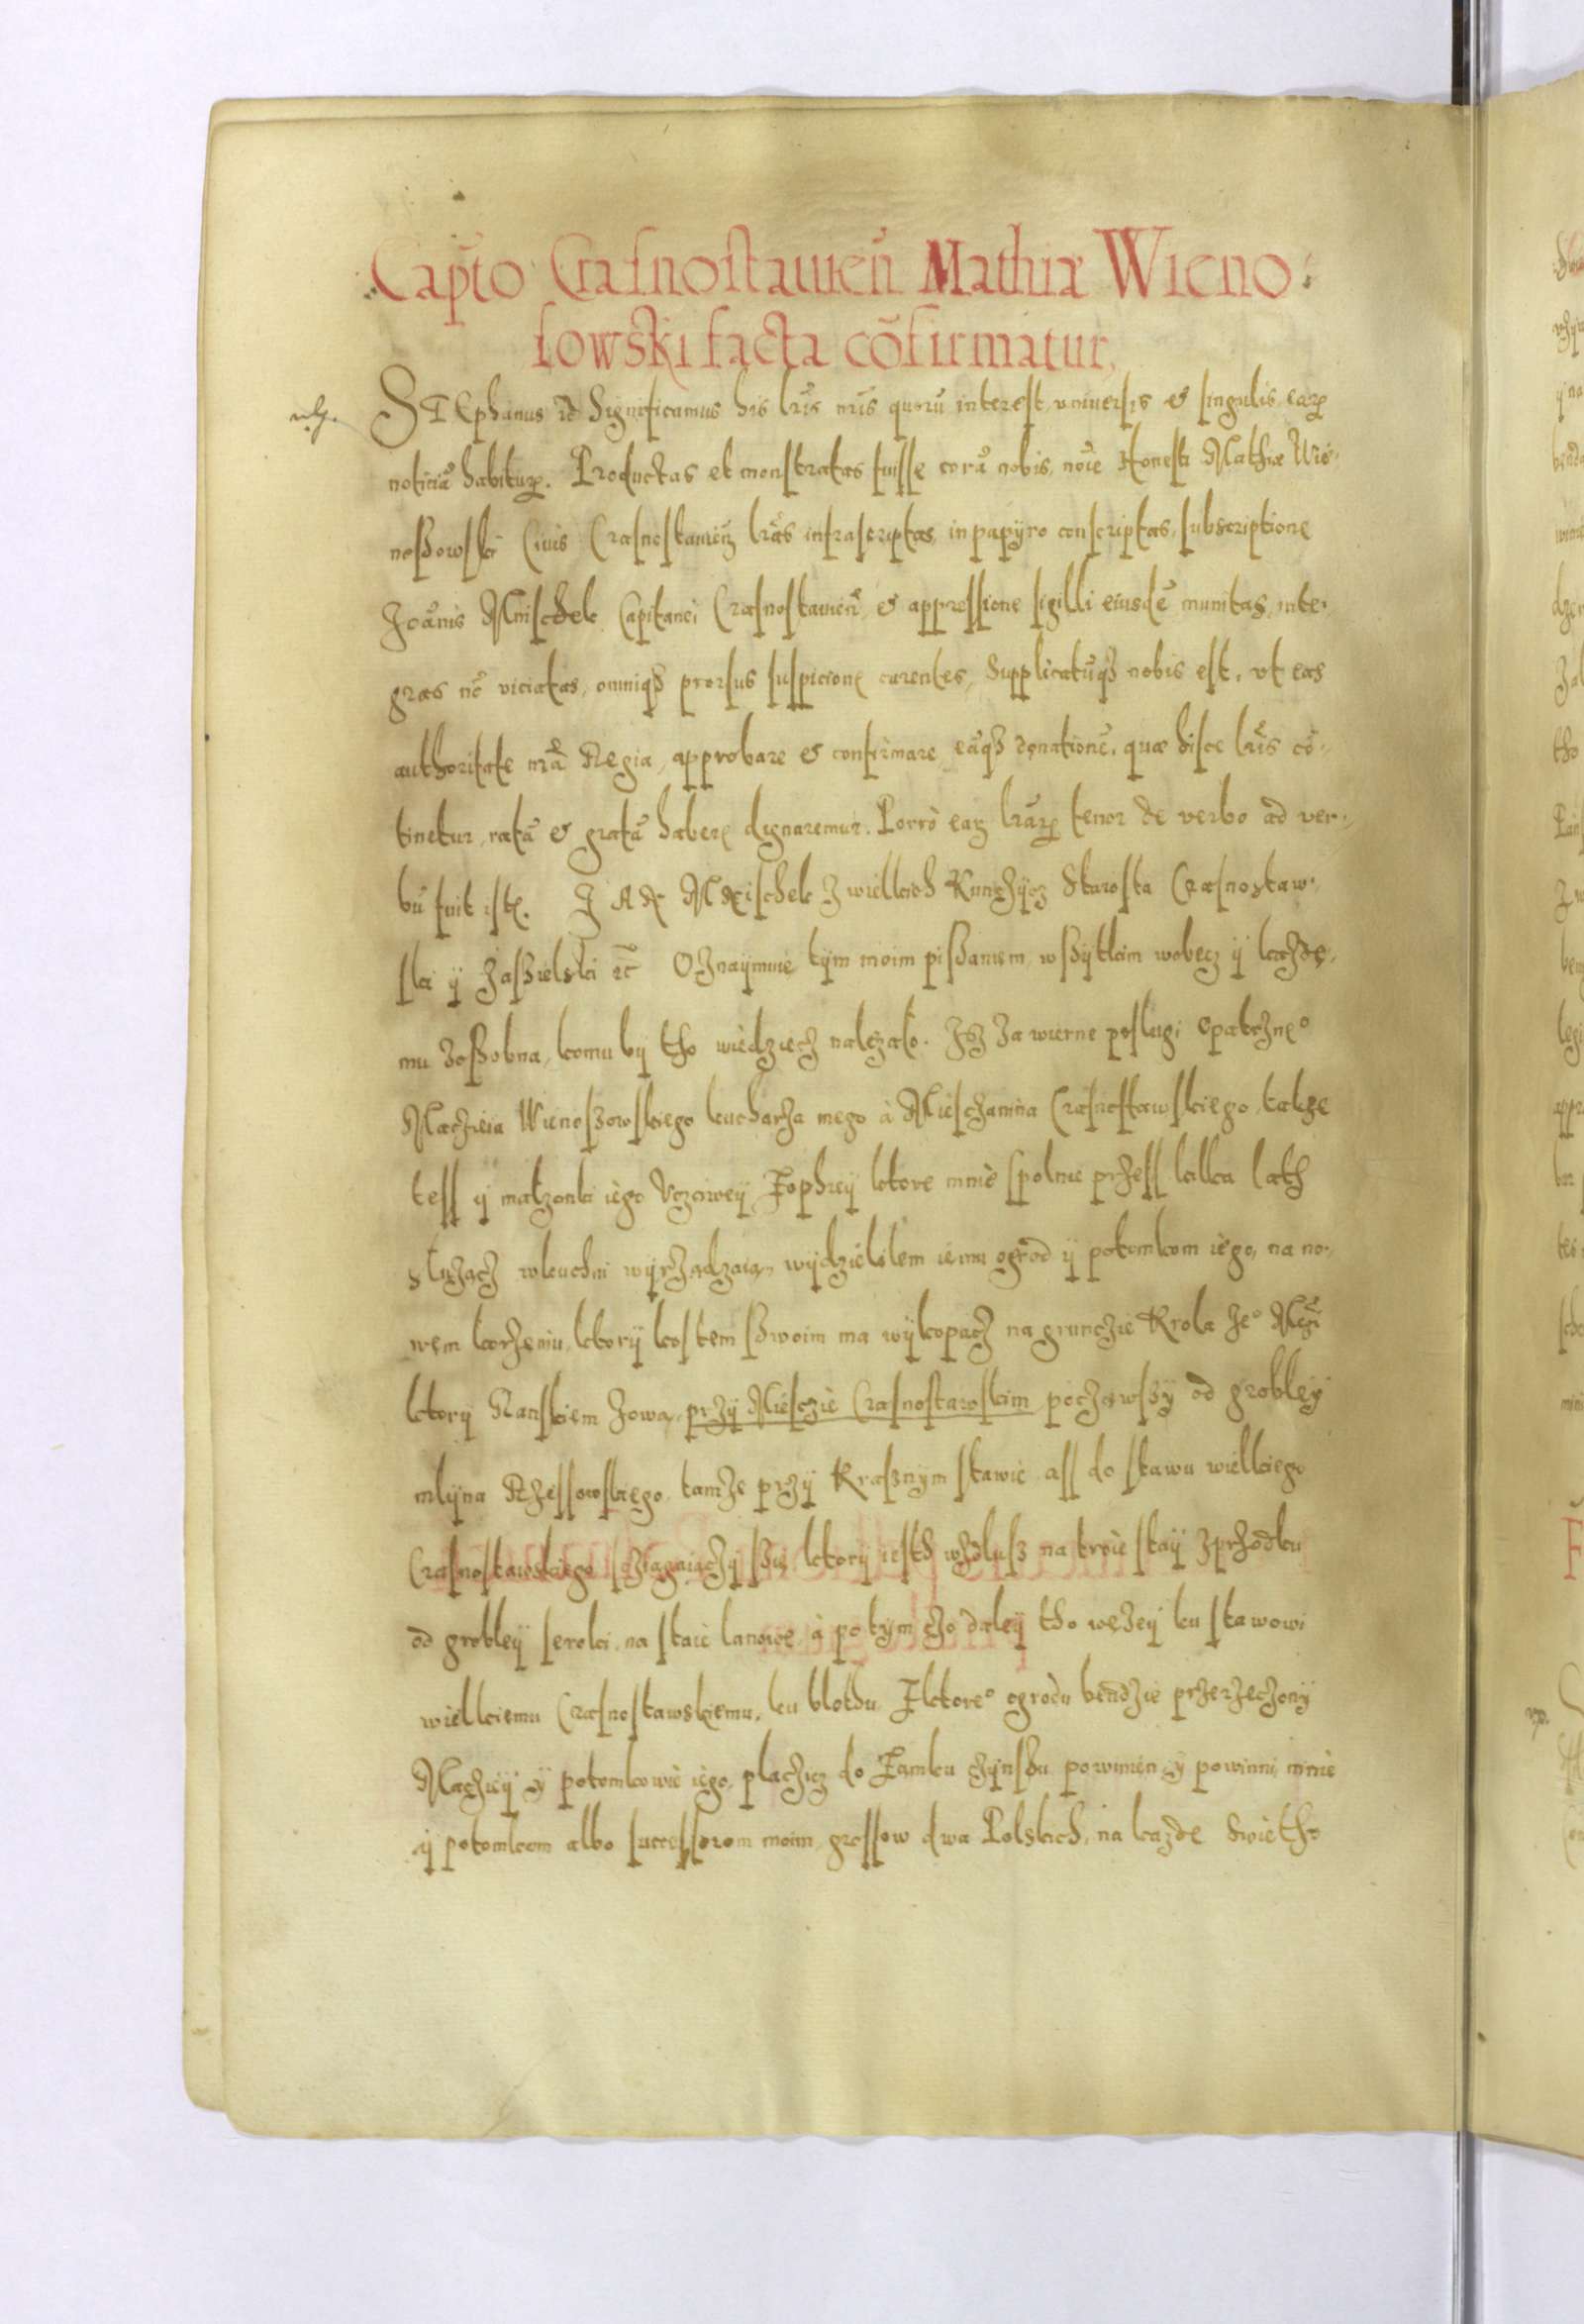 Cap̃to Crasnostawieñ Mathiæ Wieno
sowski facta cõfirmatur,
STEphanus &c̃ Significamus his lr̃is nr̃is quorũ interest, vniuersis et singulis, earꝝ
noticiã habiturꝝ. Productas et monstratas fuisse corã nobis, noĩe Honesti Mathiæ Wie-
noßowski Ciuis Crasnostawieñ lr̃as infrascriptas, in papÿro conscriptas, subscriptione
Joãnis Mnischek Capitanei Crasnostawieñ et appressione sigilli eiusdẽ munitas, inte-
gras nõ viciatas, omniqз prorsus suspicione carentes, Supplicatũqз nobis est, vt eas
authoritate nr̃a Regia, approbare et confirmare eãqз donationẽ, quæ hisce lr̃is cõ-
tinetur, ratã et gratã habere dignaremur. Porrò earꝝ lr̃arꝝ tenor de verbo ad ver-
bũ fuit iste. JAN Mnischek z wielkich Kunczÿcz Starosta Crasnostaw-
ski ÿ &c̃ Oznaÿmuie tÿm moim pißaniem, wßÿtkim wobecz ÿ kazde-
mu zoßobna, komu bÿ tho wiedziecz nalezalo. Jsz za wierne poslugi Opatrzneº
Macżieia Wienoszowskiego kucharza mego à Miesczanina Crasnostawskiego, takze
tess ÿ malzonki iego Vczciwey Zophiey ktore mnie spolnie przess kilka lath
sluzącz w kuchni wÿrządzaią, wÿdzielilem iemu ogrod ÿ potomkom iego, na no-
wem korzeniu, ktorÿ kostem ßwoim ma wÿkopacz na gruncżie Krola Jeº Mczi
ktorÿ zową, przÿ Miesczie Crasnostawskim, począwßÿ od grobleÿ
mlÿna Rzessowskiego, tamże przÿ Kraßnÿm stawie ass do stawu wielkiego
Crasnostawskiego sciągaiączÿ ßię, ktorÿ iesth wzdlusz na troie staÿ z przodku
od groblej seroki na staie lanowe, à potÿm czo daleÿ tho węzeÿ ku stawowi
wielkiemu Crasnostawskiemu, ku blothu. Z ktoreº ogrodu bendzie przerzeczonÿ
Macżieÿ ÿ potomkowie iego, placzicz do Zamku czÿnßu powinien ÿ powinni mnie
ÿ potomkom albo successorom moim grossow dwa Polskich, na kazde Swietho